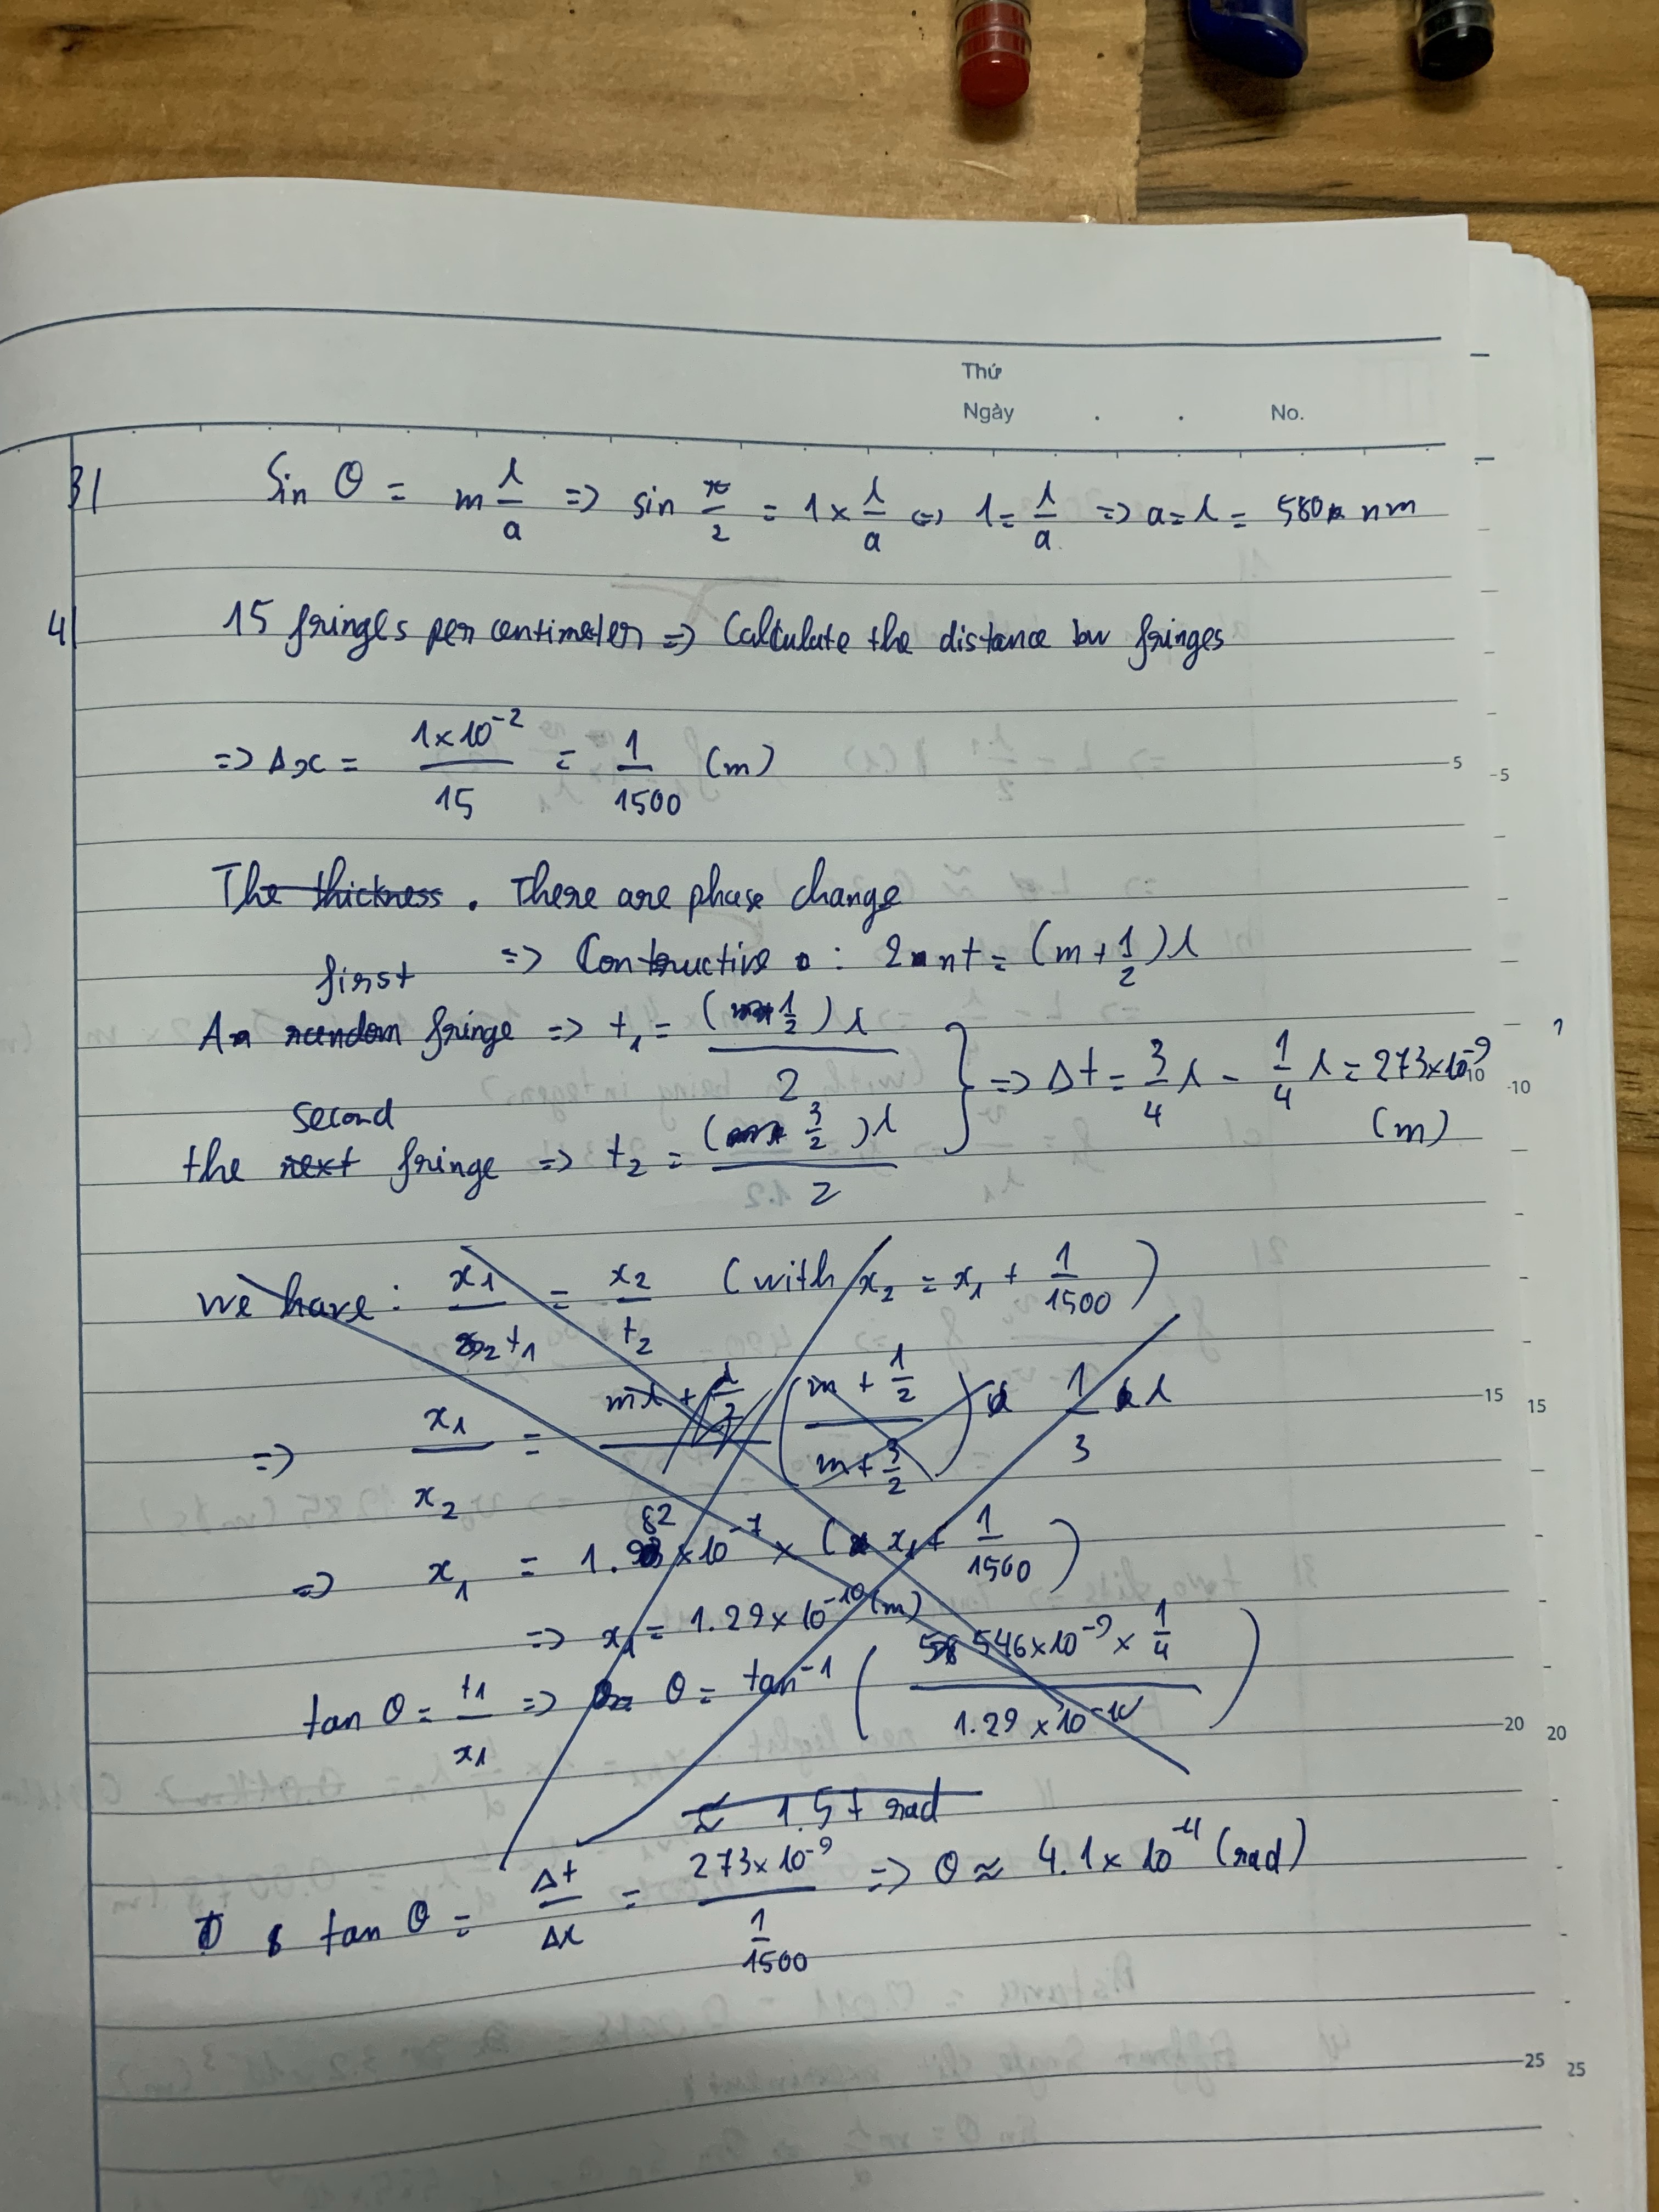 Thứ
Ngày . . No.
3/ Sin θ = m λ/a => sin π/2 = 1 × λ/a <=> 1 = λ/a => a = λ = 580 nm
4/ 15 fringes per centimeter => Calculate the distance bw fringes
=> Δx = 1×10⁻²/15 = 1/1500 (m)
5 5
The thickness. There are phase change
=> Contructive : 2nt = (m + 1/2)λ
first
A random fringe => t₁ = (1/2)λ/2
=> Δt = 3/4 λ - 1/4 λ = 273×10⁻⁹ (m)
10 10
second
the next fringe => t₂ = (3/2)λ/2
we have: x₁/t₁ = x₂/t₂ (with x₂ = x₁ + 1/1500)
=> x₁/x₂ = (m + 1/2 / m + 3/2) 1/3 λ
15 15
=> x₁ = 1.82×10⁻⁷ × (x₁ + 1/1500)
=> x₁ = 1.29×10⁻¹⁰ (m)
tan θ = t₁/x₁ => θ = tan⁻¹ (546×10⁻⁹ × 1/4 / 1.29×10⁻¹⁰)
20 20
≈ 1.57 rad
tan θ = Δt/Δx = 273×10⁻⁹ / 1/1500 => θ ≈ 4.1×10⁻⁴ (rad)
25 25